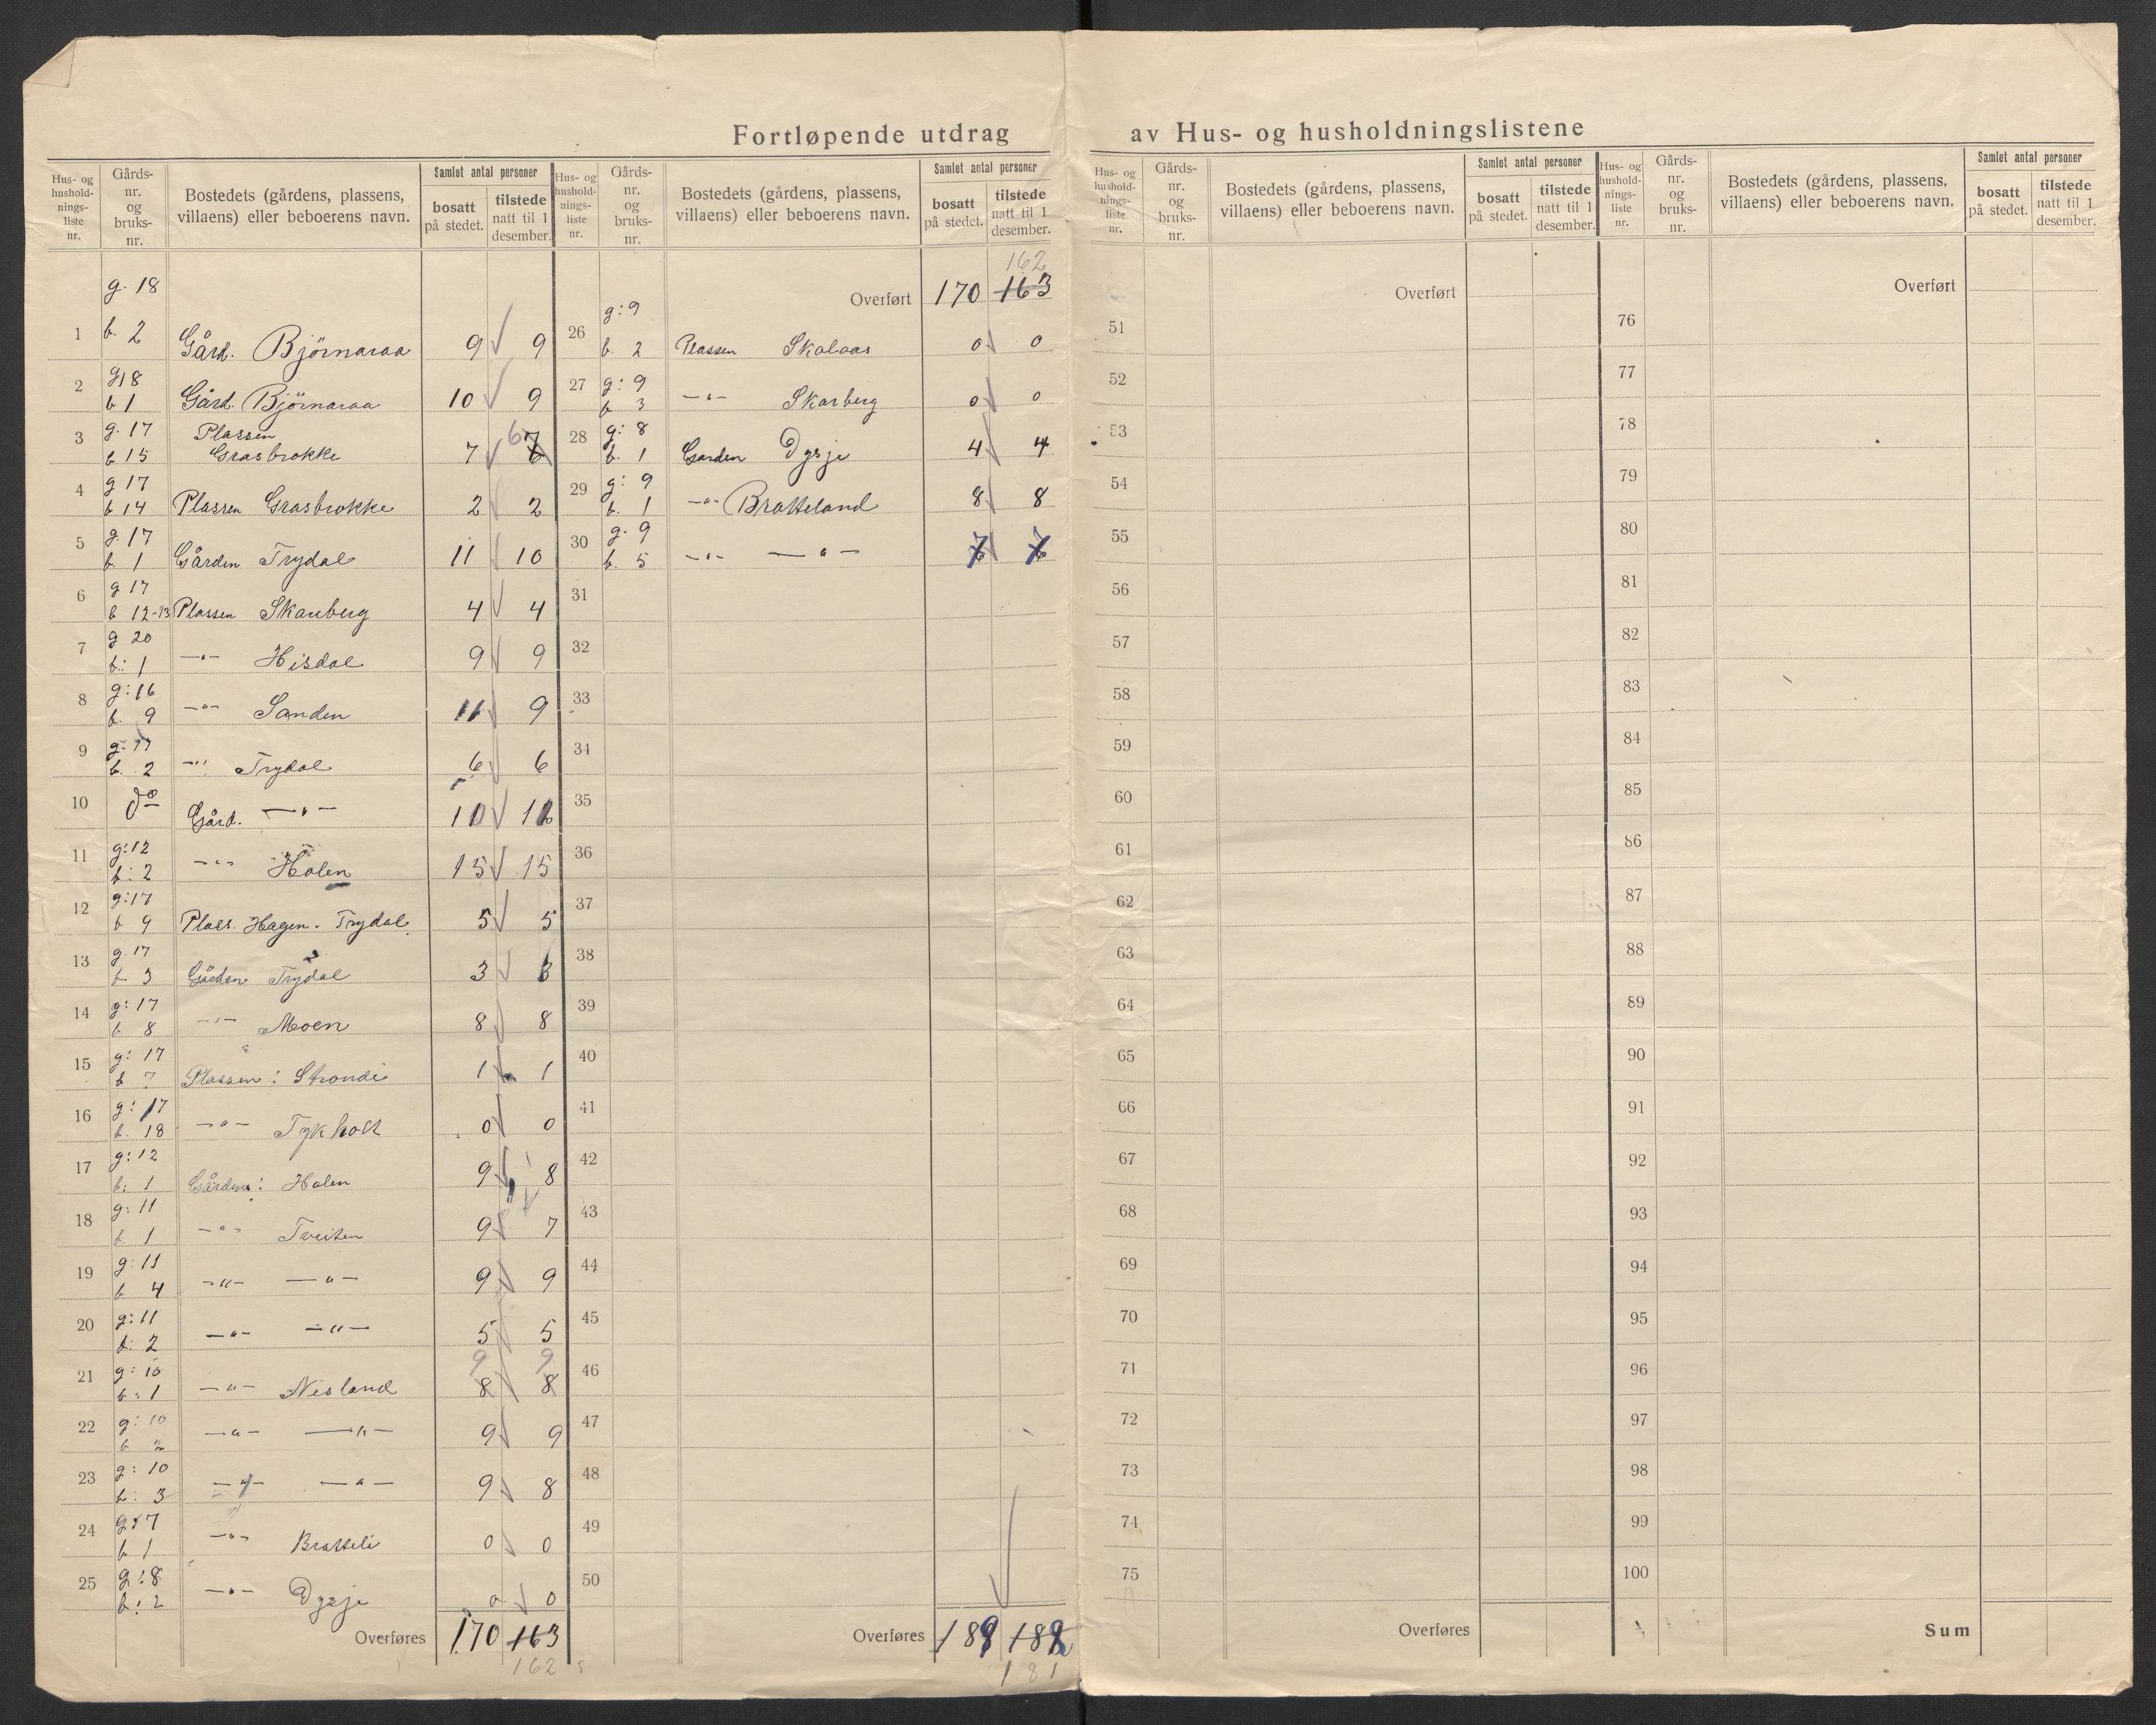 Fortløpende utdrag av Hus- og husholdningslistene
Hus- og hushold-nings-liste nr. Gårds-nr. og bruks-nr. Bostedets (gårdens, plassens, villaens) eller beboerens navn. Samlet antal personer bosatt på stedet. tilstede natt til 1 desember.
g. 18
1 b. 2 Gård. Björnaraa 9 9
2 g18 b 1 Gård. Björnaraa 10 9
3 g. 17 b 15 Plassen Grasbrokke 7 6 7
4 g 17 b 14 Plassen Grasbrokke 2 2
5 g. 17 b. 1 Gården Trydal 11 10
6 g 17 b 12-13 Plassen Skarberg 4 4
7 g 20 b: 1 —"— Hisdal 9 9
8 g: 16 b. 9 —"— Sanden 11 9
9 g: 17 b. 2 —"— Trydal 6 6
10 do Gård. —"— 10
11 g: 12 b: 2 —"— Holen 15 15
12 g: 17 b 9 Plass. Hagen. Trydal. 5 5
13 g. 17 b. 3 Gården Trydal 3 3
14 g: 17 b 8 —"— Moen 8 8
15 g: 17 b 7 Plassen: Strondi 1 1
16 g: 17 b. 18 —"— Tykholt 0 0
17 g: 12 b: 1 Gården: Holen 9 8
18 g: 11 b. 1 —"— Tveiten 9 7
19 g: 11 b 4 —"— —"— 9 9
20 g: 11 b: 2 —"— —"— 5 5
9 9
21 g: 10 b: 1 —"— Nesland 8 8
22 g: 10 b 2 —"— —"— 9 9
23 g: 10 b. 3 —"— —"— 9 8
24 g: 7 b 1 —"— Bratteli 0 0
25 g: 8 b: 2 —"— Dysje 0 0
Overføres 170 163
162
Hus- og hushold-nings-liste nr. Gårds-nr. og bruks-nr. Bostedets (gårdens, plassens, villaens) eller beboerens navn. Samlet antal personer bosatt på stedet. tilstede natt til 1 desember.
162
Overført 170 163
26 g: 9 b. 2 Plassen Skolaas 0 0
27 g: 9 b 3 —"— Skarberg 0 0
28 g: 8 b. 1 Garden Dysje 4 4
29 g: 9 b. 1 —"— Bratteland 8 8
30 g. 9 b. 5 —"— —"— 7 7
31
32
33
34
35
36
37
38
39
40
41
42
43
44
45
46
47
48
49
50
Overføres 189 182
181
Hus- og hushold-nings-liste nr. Gårds-nr. og bruks-nr. Bostedets (gårdens, plassens, villaens) eller beboerens navn. Samlet antal personer bosatt på stedet. tilstede natt til 1 desember.
Overført
51
52
53
54
55
56
57
58
59
60
61
62
63
64
65
66
67
68
69
70
71
72
73
74
75
Overføres
Hus- og hushold-nings-liste nr. Gårds-nr. og bruks-nr. Bostedets (gårdens, plassens, villaens) eller beboerens navn. Samlet antal personer bosatt på stedet. tilstede natt til 1 desember.
Overført
76
77
78
79
80
81
82
83
84
85
86
87
88
89
90
91
92
93
94
95
96
97
98
99
100
Sum